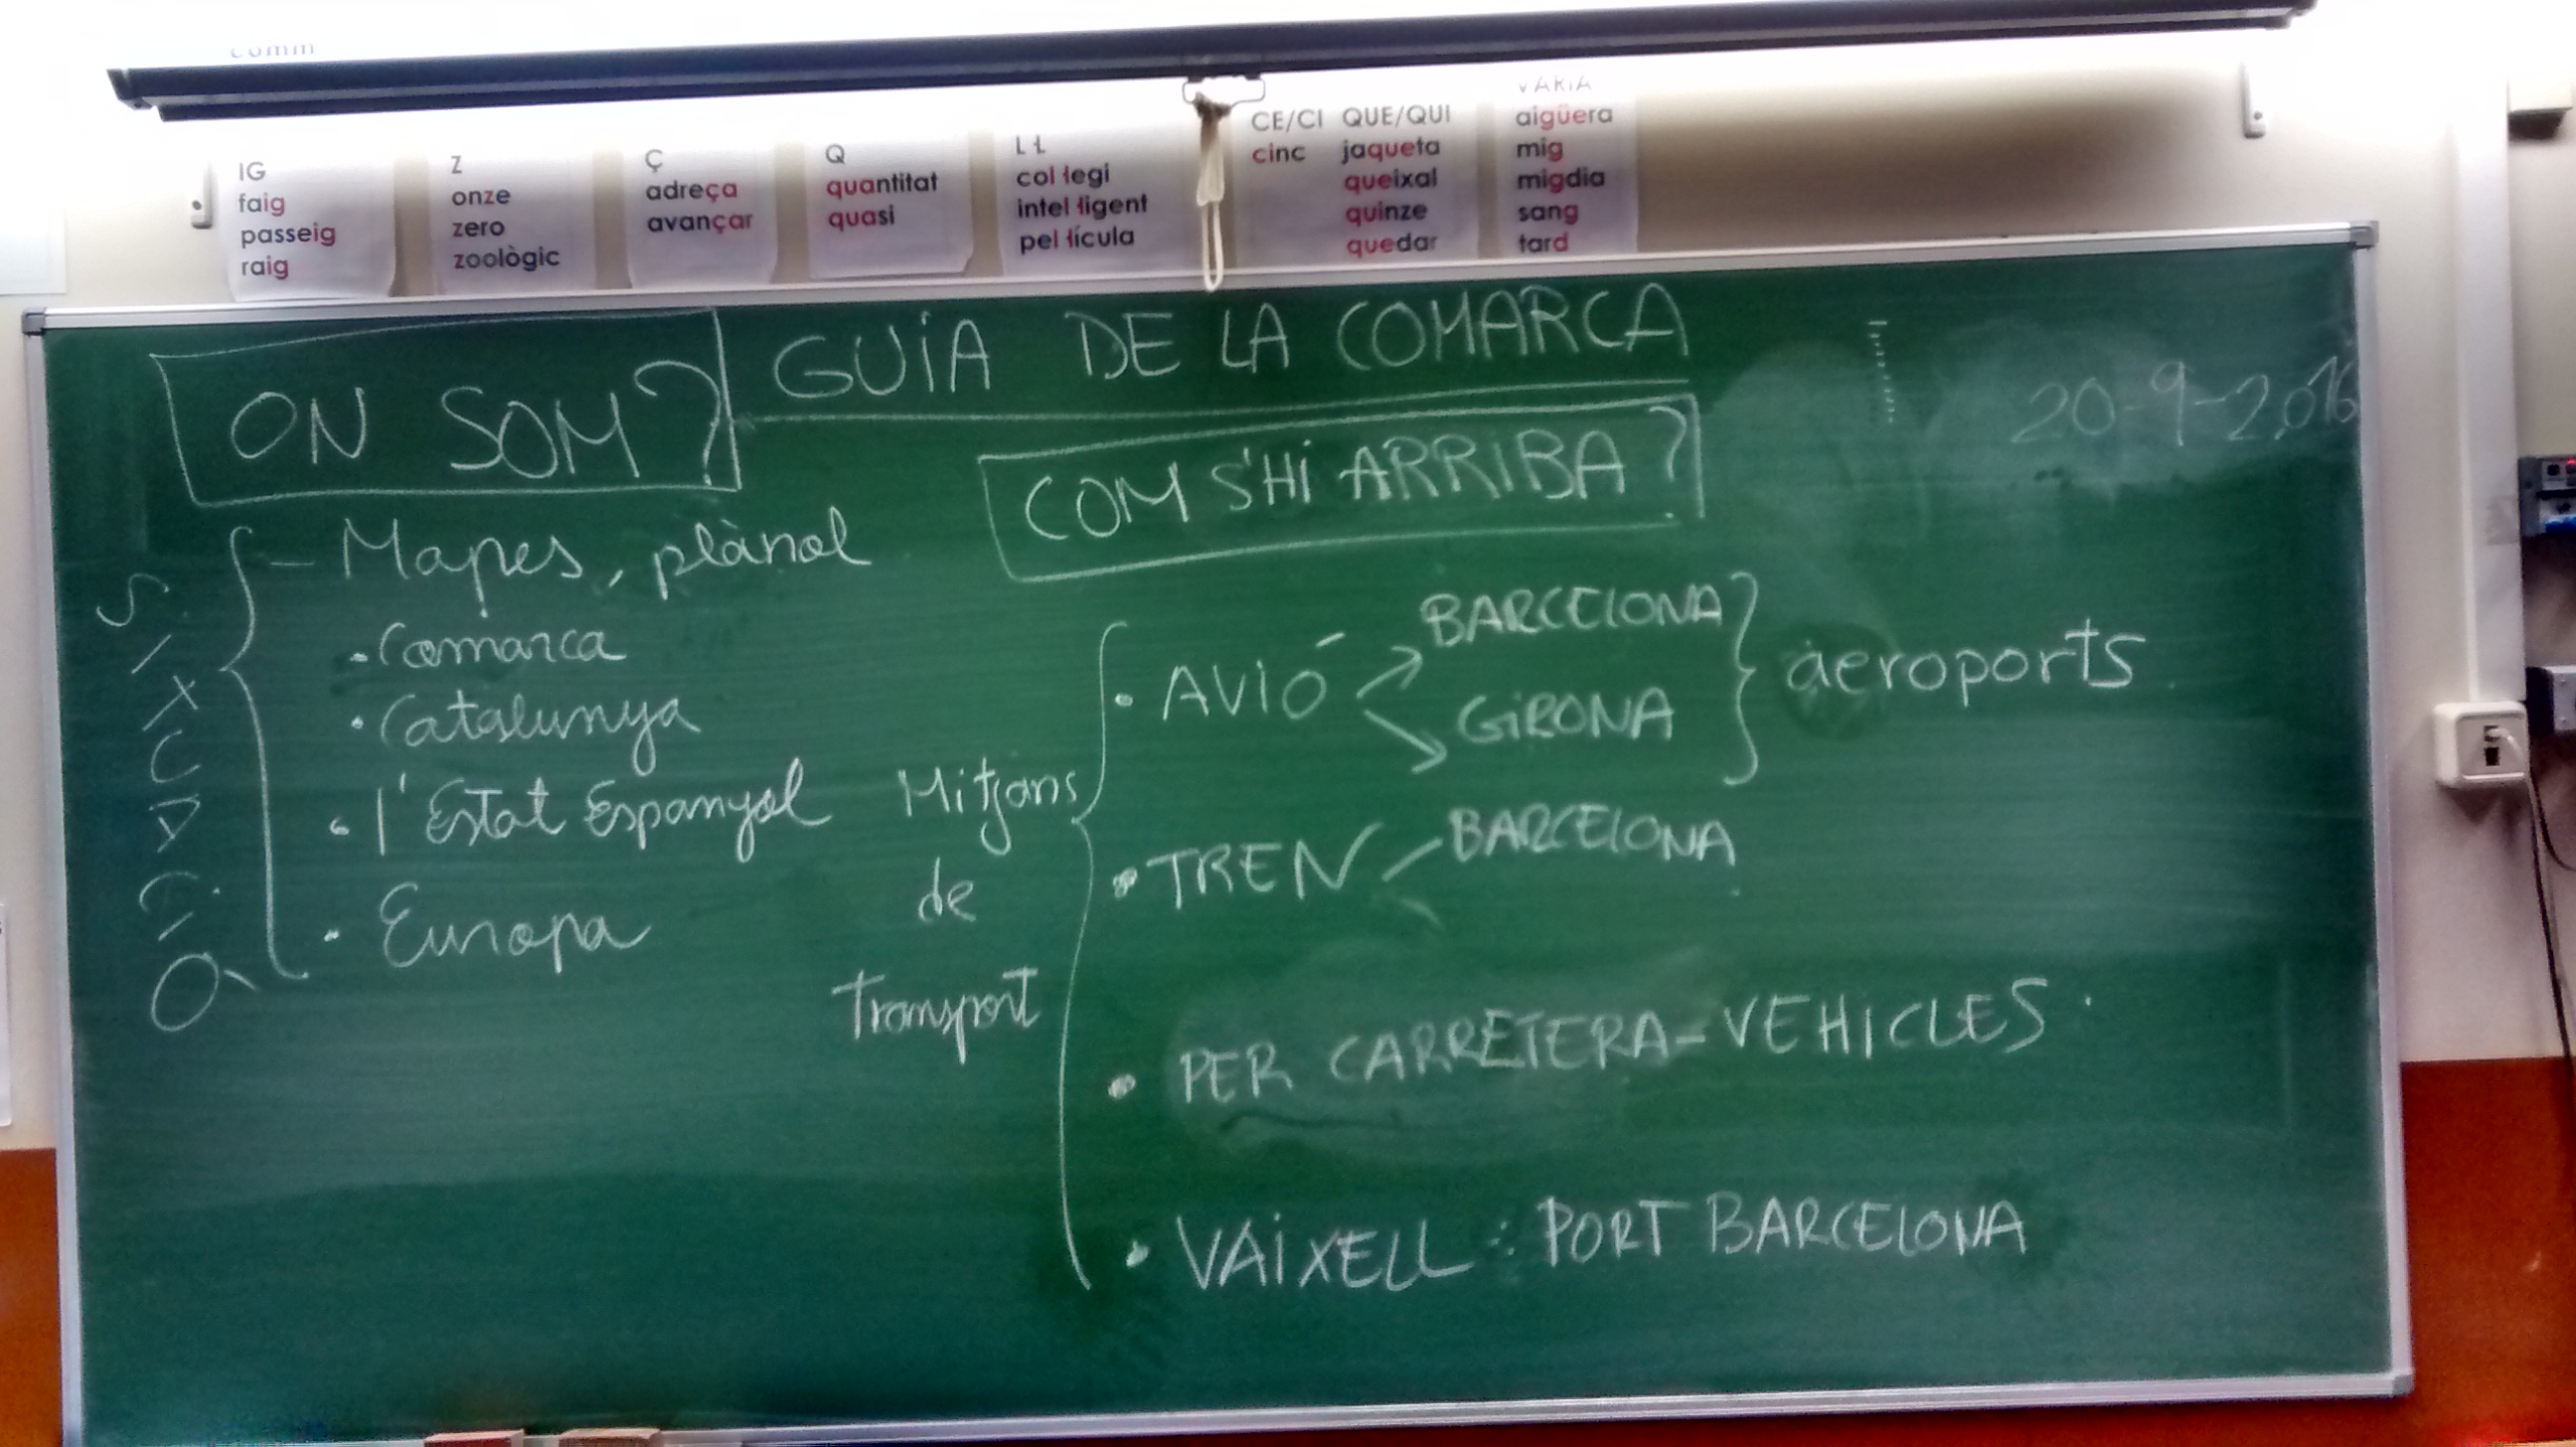 IG
faig
passeig
raig
Z
onze
zero
zoològic
Ç
adreça
avançar
Q
quantitat
quasi
L·L
col·legi
intel·ligent
pel·lícula
CE/CI QUE/QUI
cinc jaqueta
queixal
quinze
quedar
VARIA
aigüera
mig
migdia
sang
tard
GUIA DE LA COMARCA
20-9-2016
ON SOM?
- Mapes, plànol
· Comarca
· Catalunya
· l'Estat Espanyol
· Europa
COM S'HI ARRIBA?
Mitjans
de
Transport
· AVIÓ
BARCELONA
GIRONA
aeroports
· TREN
BARCELONA
· PER CARRETERA - VEHICLES
· VAIXELL : PORT BARCELONA